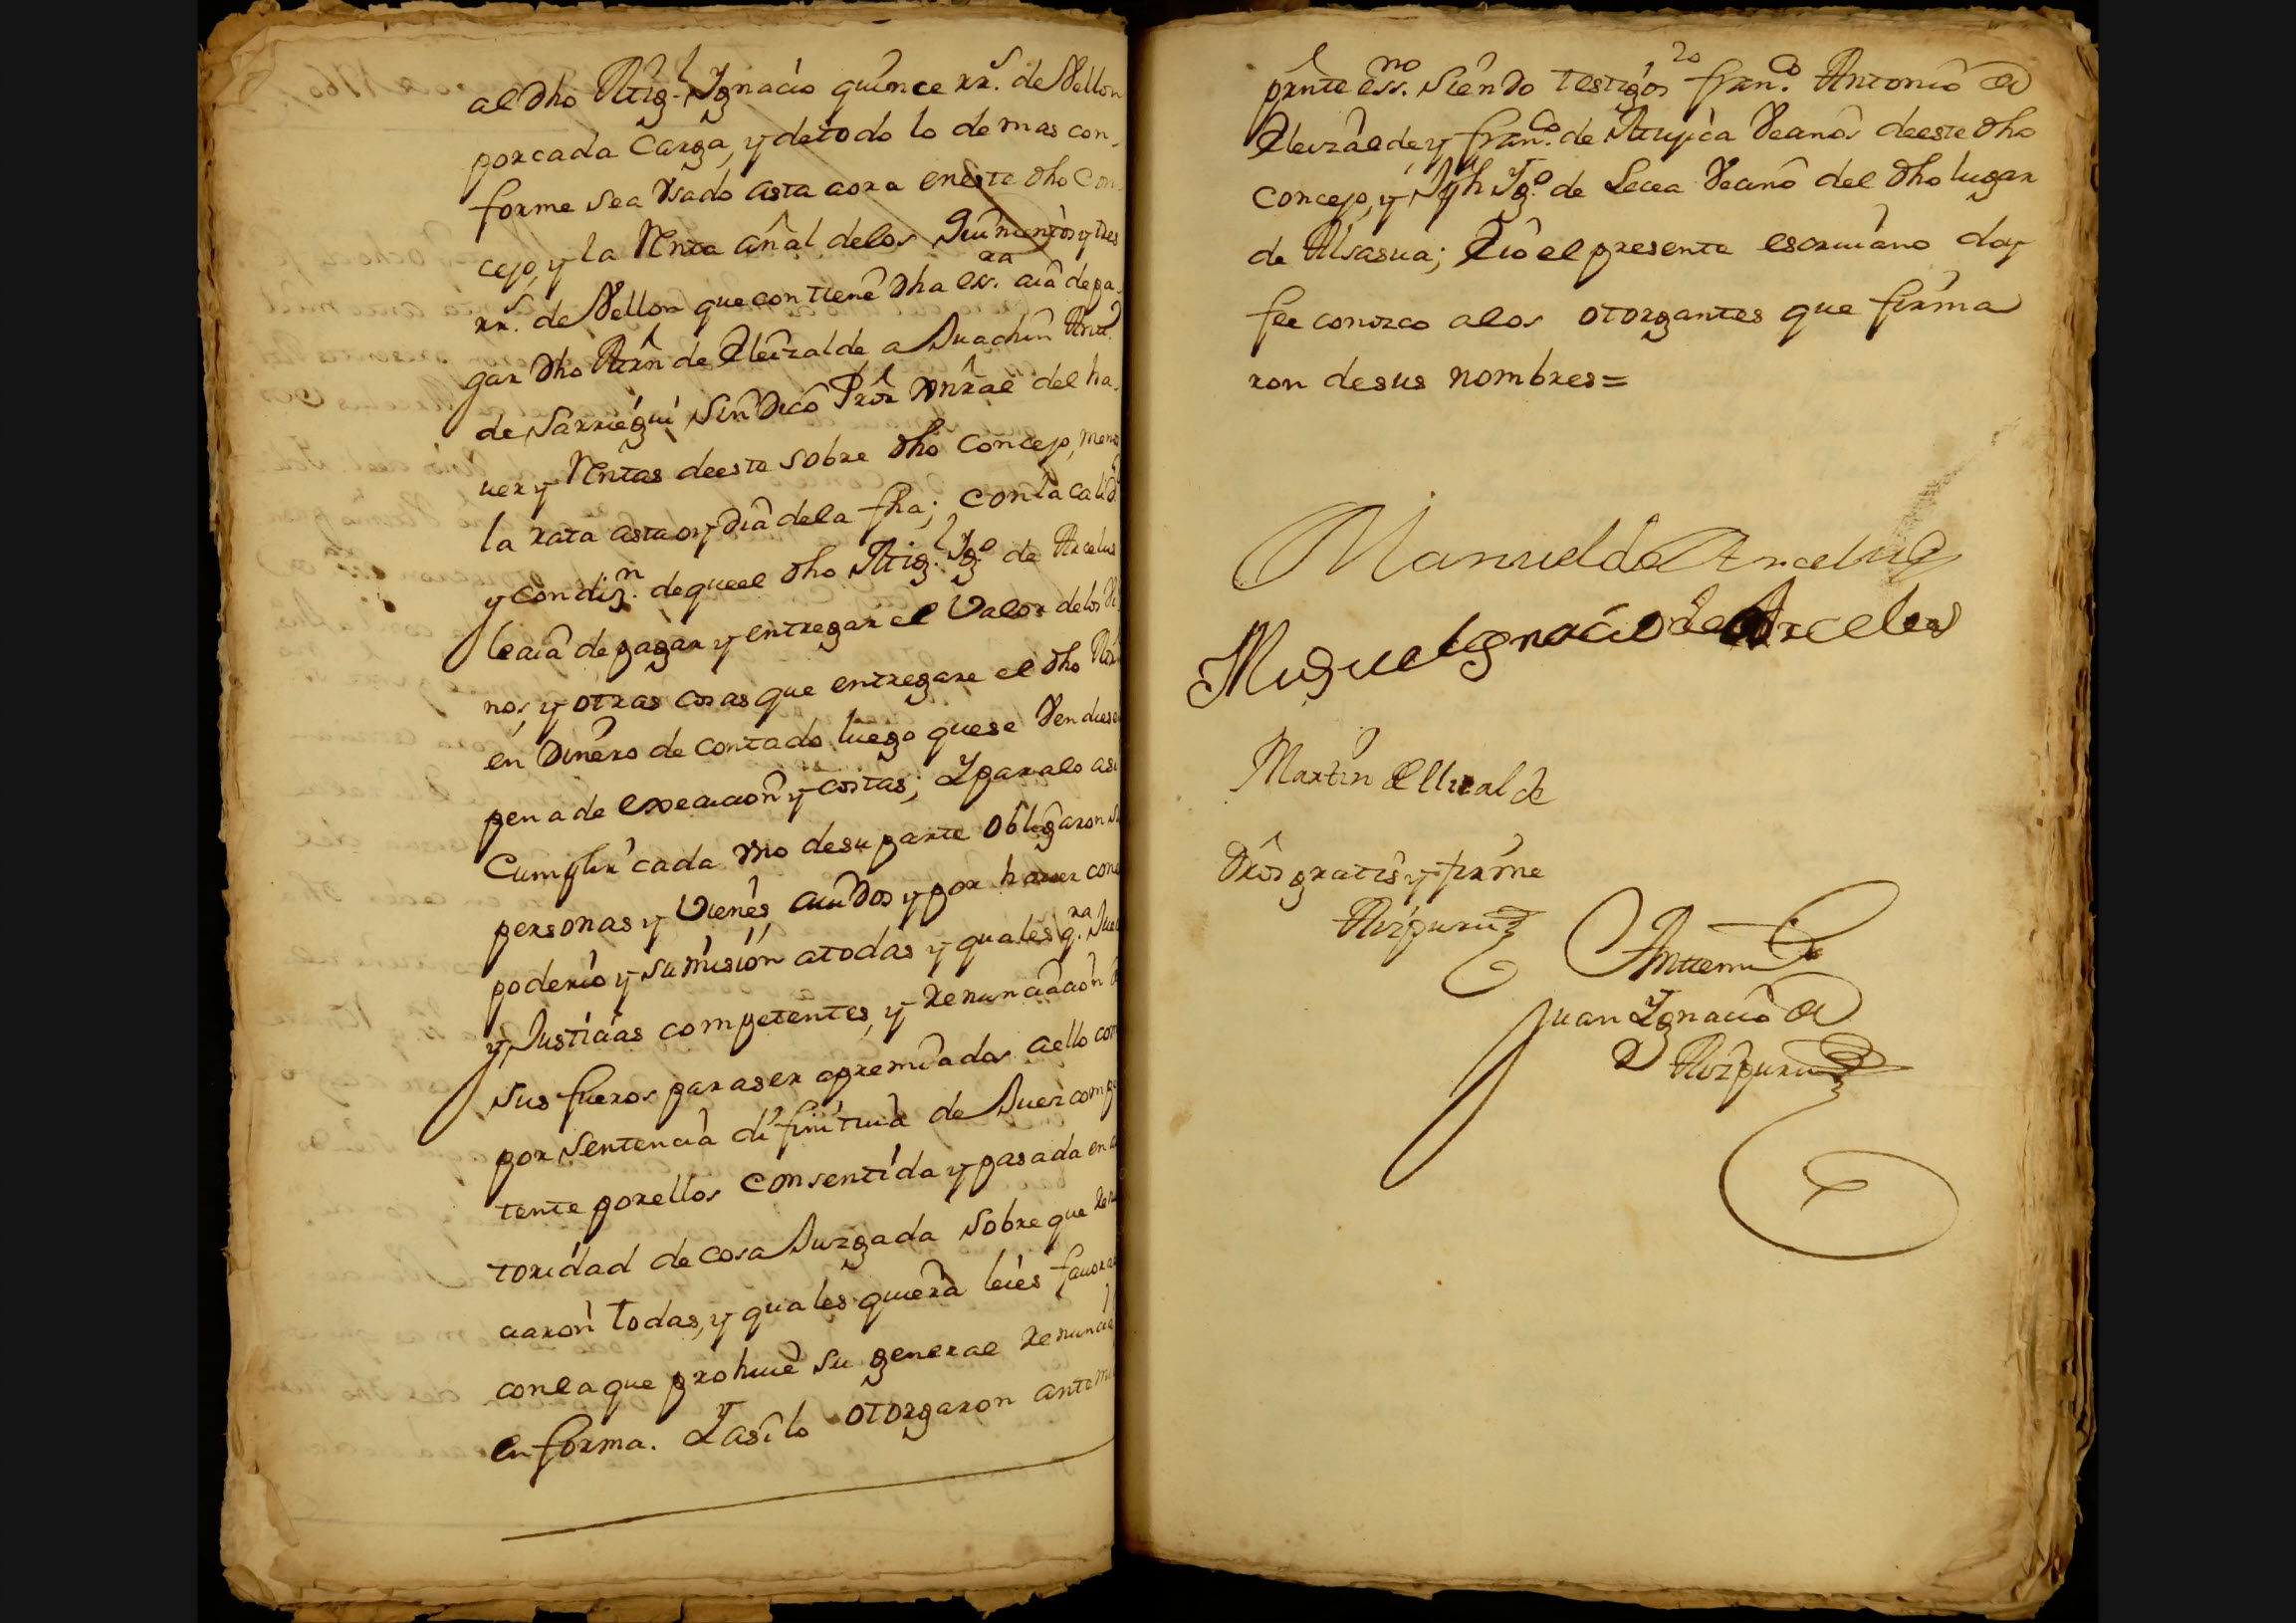 al dho Mig.l Ygnacio quince rr.s de Vellon
por cada Carga, y de todo lo demas con-
forme sea Usado asta aora en este dho Con-
cejo, y la Renta añal delos Quinientos y tres
rr.s de Vellon que contiene dha ess.ra aia de pa-
gar dho Mrn de Eleizalde a Juachin Antt.o
de Sarriegui Sindico Pror Gnral del ha-
uer y Rentas de este sobre dho Concejo, menos
la rata asta oy dia dela fha; con la calid.d
y Condiz.n de que el dho Mig.l Yg.o de Arcelus
le aia de pagar y entregar el Valor delos
nos, y otras cosas que entregare el dho
en Dinero de contado luego que se Vendiese
pena de execucion y costas; Y para lo asi
Cumplir cada uno de su parte obligaron su
personas y Vienes auidos y por hauer con
poderio y sumision a todas y quales q.ra Juez
y Justicias competentes, y renunciacion de
sus fueros para ser apremiados a ello com
por Sentencia difinitiua de Juez compe
tente por ellos consentida y pasada en au
toridad de cosa Juzgada sobre que renun
ciaron todas, y quales quiera leies fauora
con la que prohiue su general renuncia
en forma. Y asi lo otorgaron ante mi
prnte ess.no Siendo testigos fran.co Antonio de
Eleizalde, y fran.co de Mujica Vecinos de este dho
Concejo, y Jph Yg.o de Lecea Vecino del dho lugar
de Alsasua; E io el presente escriuano doy
fee conozco alos otorgantes que firma
ron de sus nombres=
Manuel de Arcelus
Miguel Ygnacio de Arcelus
Martin Elizalde
Dros gratis y firme
Aizpuru
Antemi
Juan Ygnacio de
Aizpuru